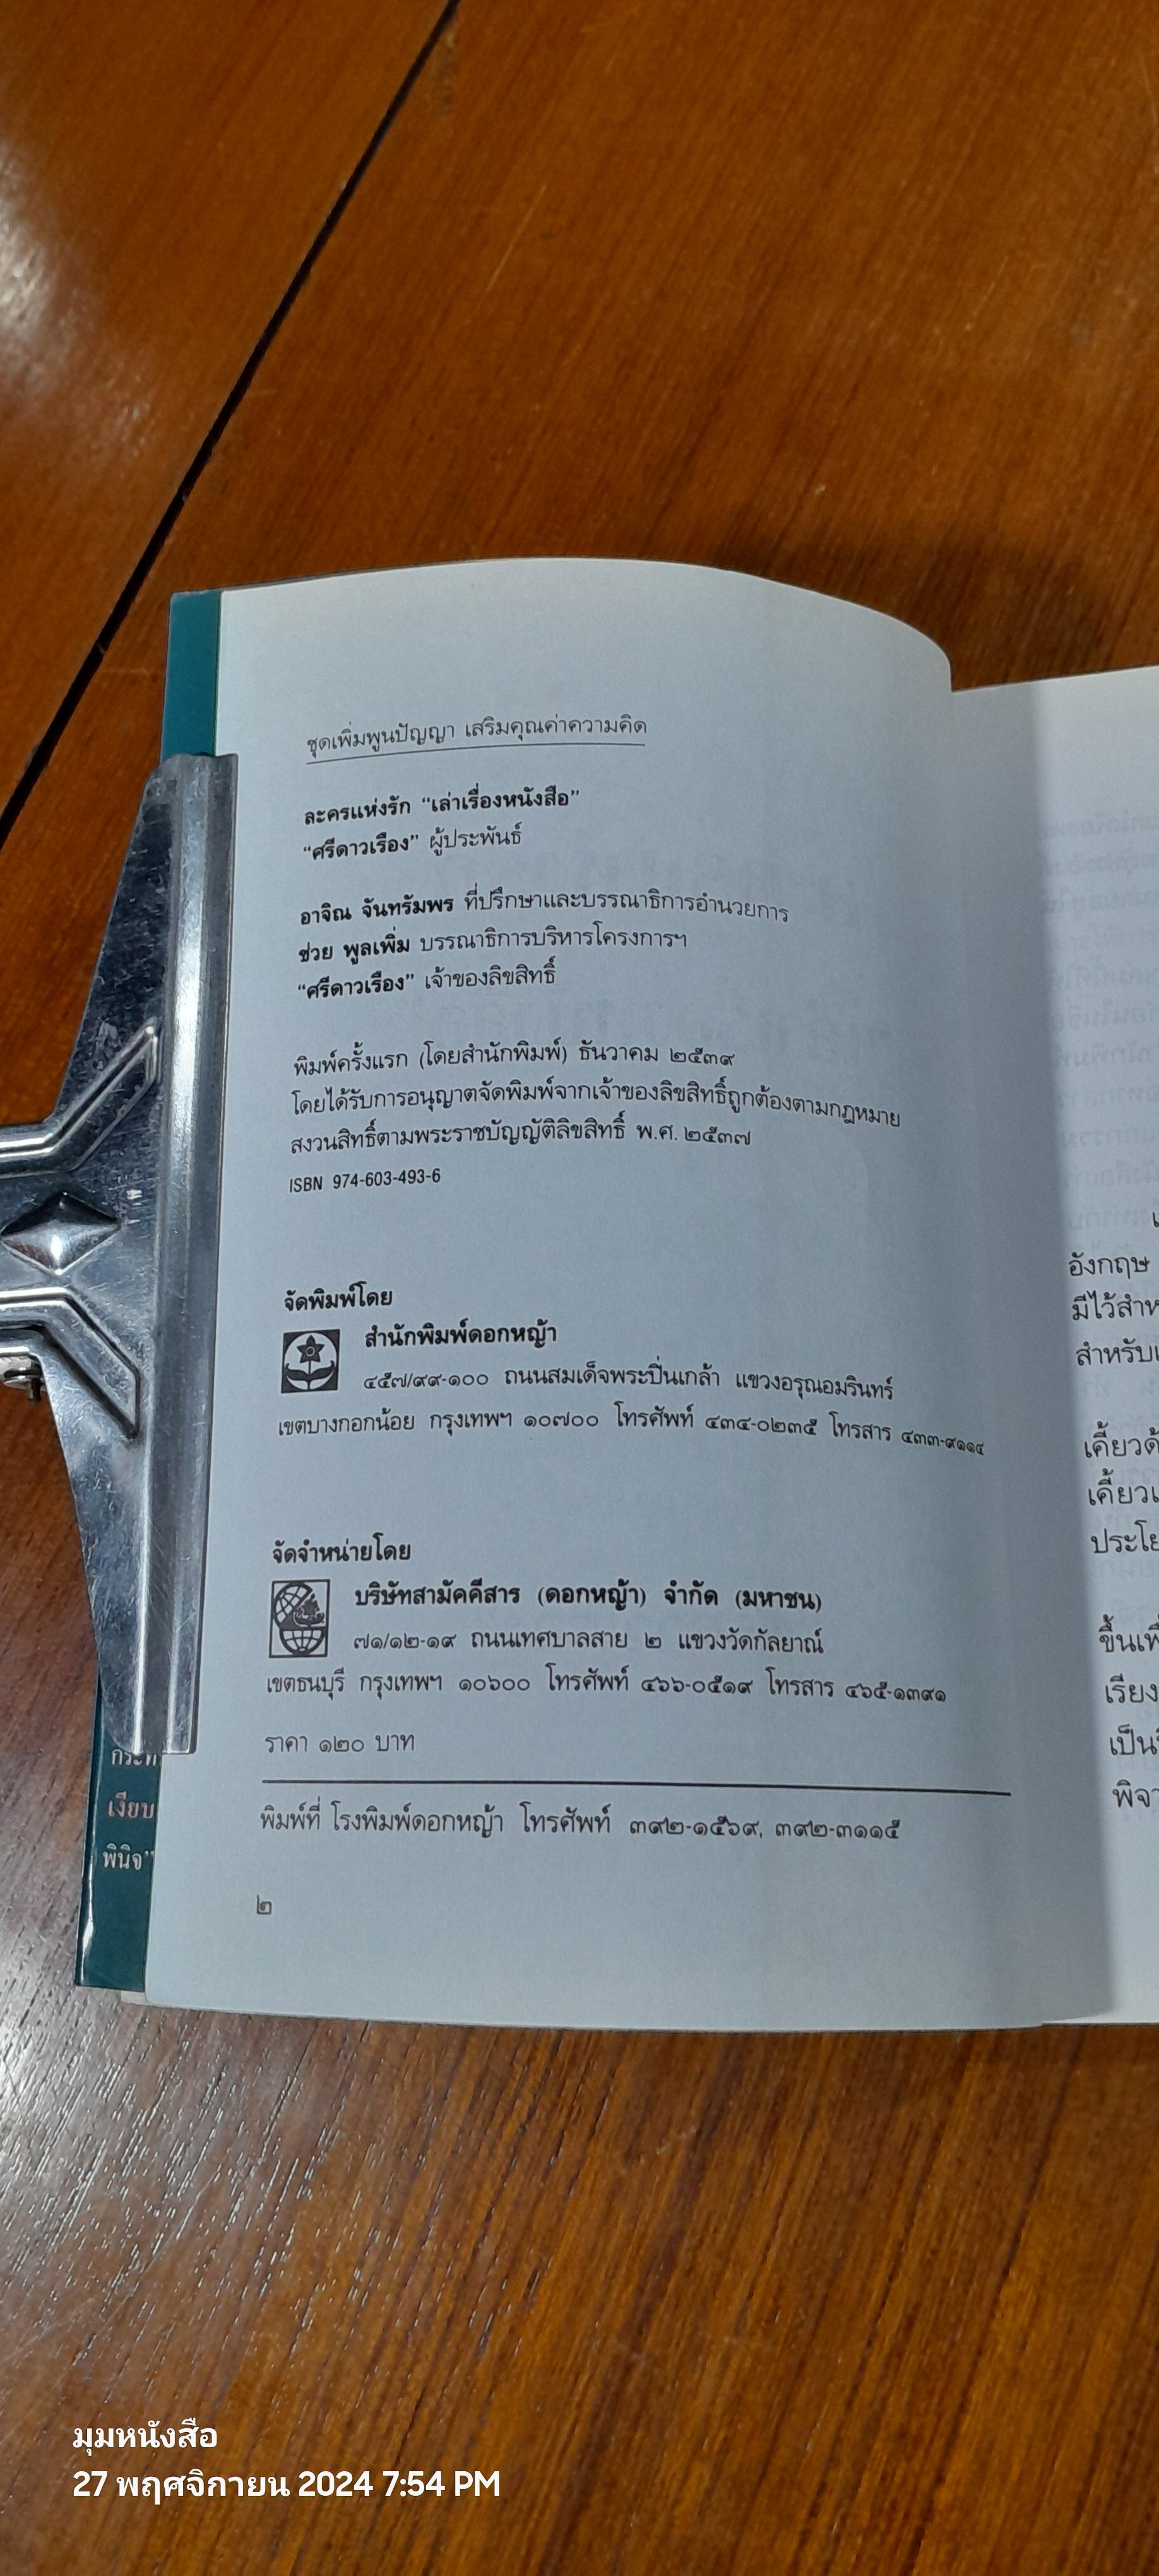 ชุดเพิ่มพูนปัญญา เสริมคุณค่าความคิด
ละครแห่งรัก “เล่าเรื่องหนังสือ”
“ศรีดาวเรือง” ผู้ประพันธ์
อาจิณ จันทรัมพร ที่ปรึกษาและบรรณาธิการอำนวยการ
ช่วย พูลเพิ่ม บรรณาธิการบริหารโครงการฯ
“ศรีดาวเรือง” เจ้าของลิขสิทธิ์
พิมพ์ครั้งแรก (โดยสำนักพิมพ์) ธันวาคม ๒๕๓๙
โดยได้รับการอนุญาตจัดพิมพ์จากเจ้าของลิขสิทธิ์ถูกต้องตามกฎหมาย
สงวนสิทธิ์ตามพระราชบัญญัติลิขสิทธิ์ พ.ศ. ๒๕๓๗
ISBN 974-603-493-6
จัดพิมพ์โดย
สำนักพิมพ์ดอกหญ้า
๔๕๗/๙๙-๑๐๐ ถนนสมเด็จพระปิ่นเกล้า แขวงอรุณอมรินทร์
เขตบางกอกน้อย กรุงเทพฯ ๑๐๗๐๐ โทรศัพท์ ๔๓๔-๐๒๓๕ โทรสาร ๔๓๓-๙๑๑๔
จัดจำหน่ายโดย
บริษัทสามัคคีสาร (ดอกหญ้า) จำกัด (มหาชน)
๗๑/๑๒-๑๙ ถนนเทศบาลสาย ๒ แขวงวัดกัลยาณ์
เขตธนบุรี กรุงเทพฯ ๑๐๖๐๐ โทรศัพท์ ๔๖๖-๐๕๑๙ โทรสาร ๔๖๕-๑๓๙๑
ราคา ๑๒๐ บาท
พิมพ์ที่ โรงพิมพ์ดอกหญ้า โทรศัพท์ ๓๙๒-๑๕๖๙, ๓๙๒-๓๑๑๕
๒
เงียบ
พินิจ”
อังกฤษ
มีไว้สำห
สำหรับ
เคี้ยวด้
เคี้ยวเ
ประโย
ขึ้นเพื่
เรียง
เป็น
พิจา
มุมหนังสือ
27 พฤศจิกายน 2024 7:54 PM